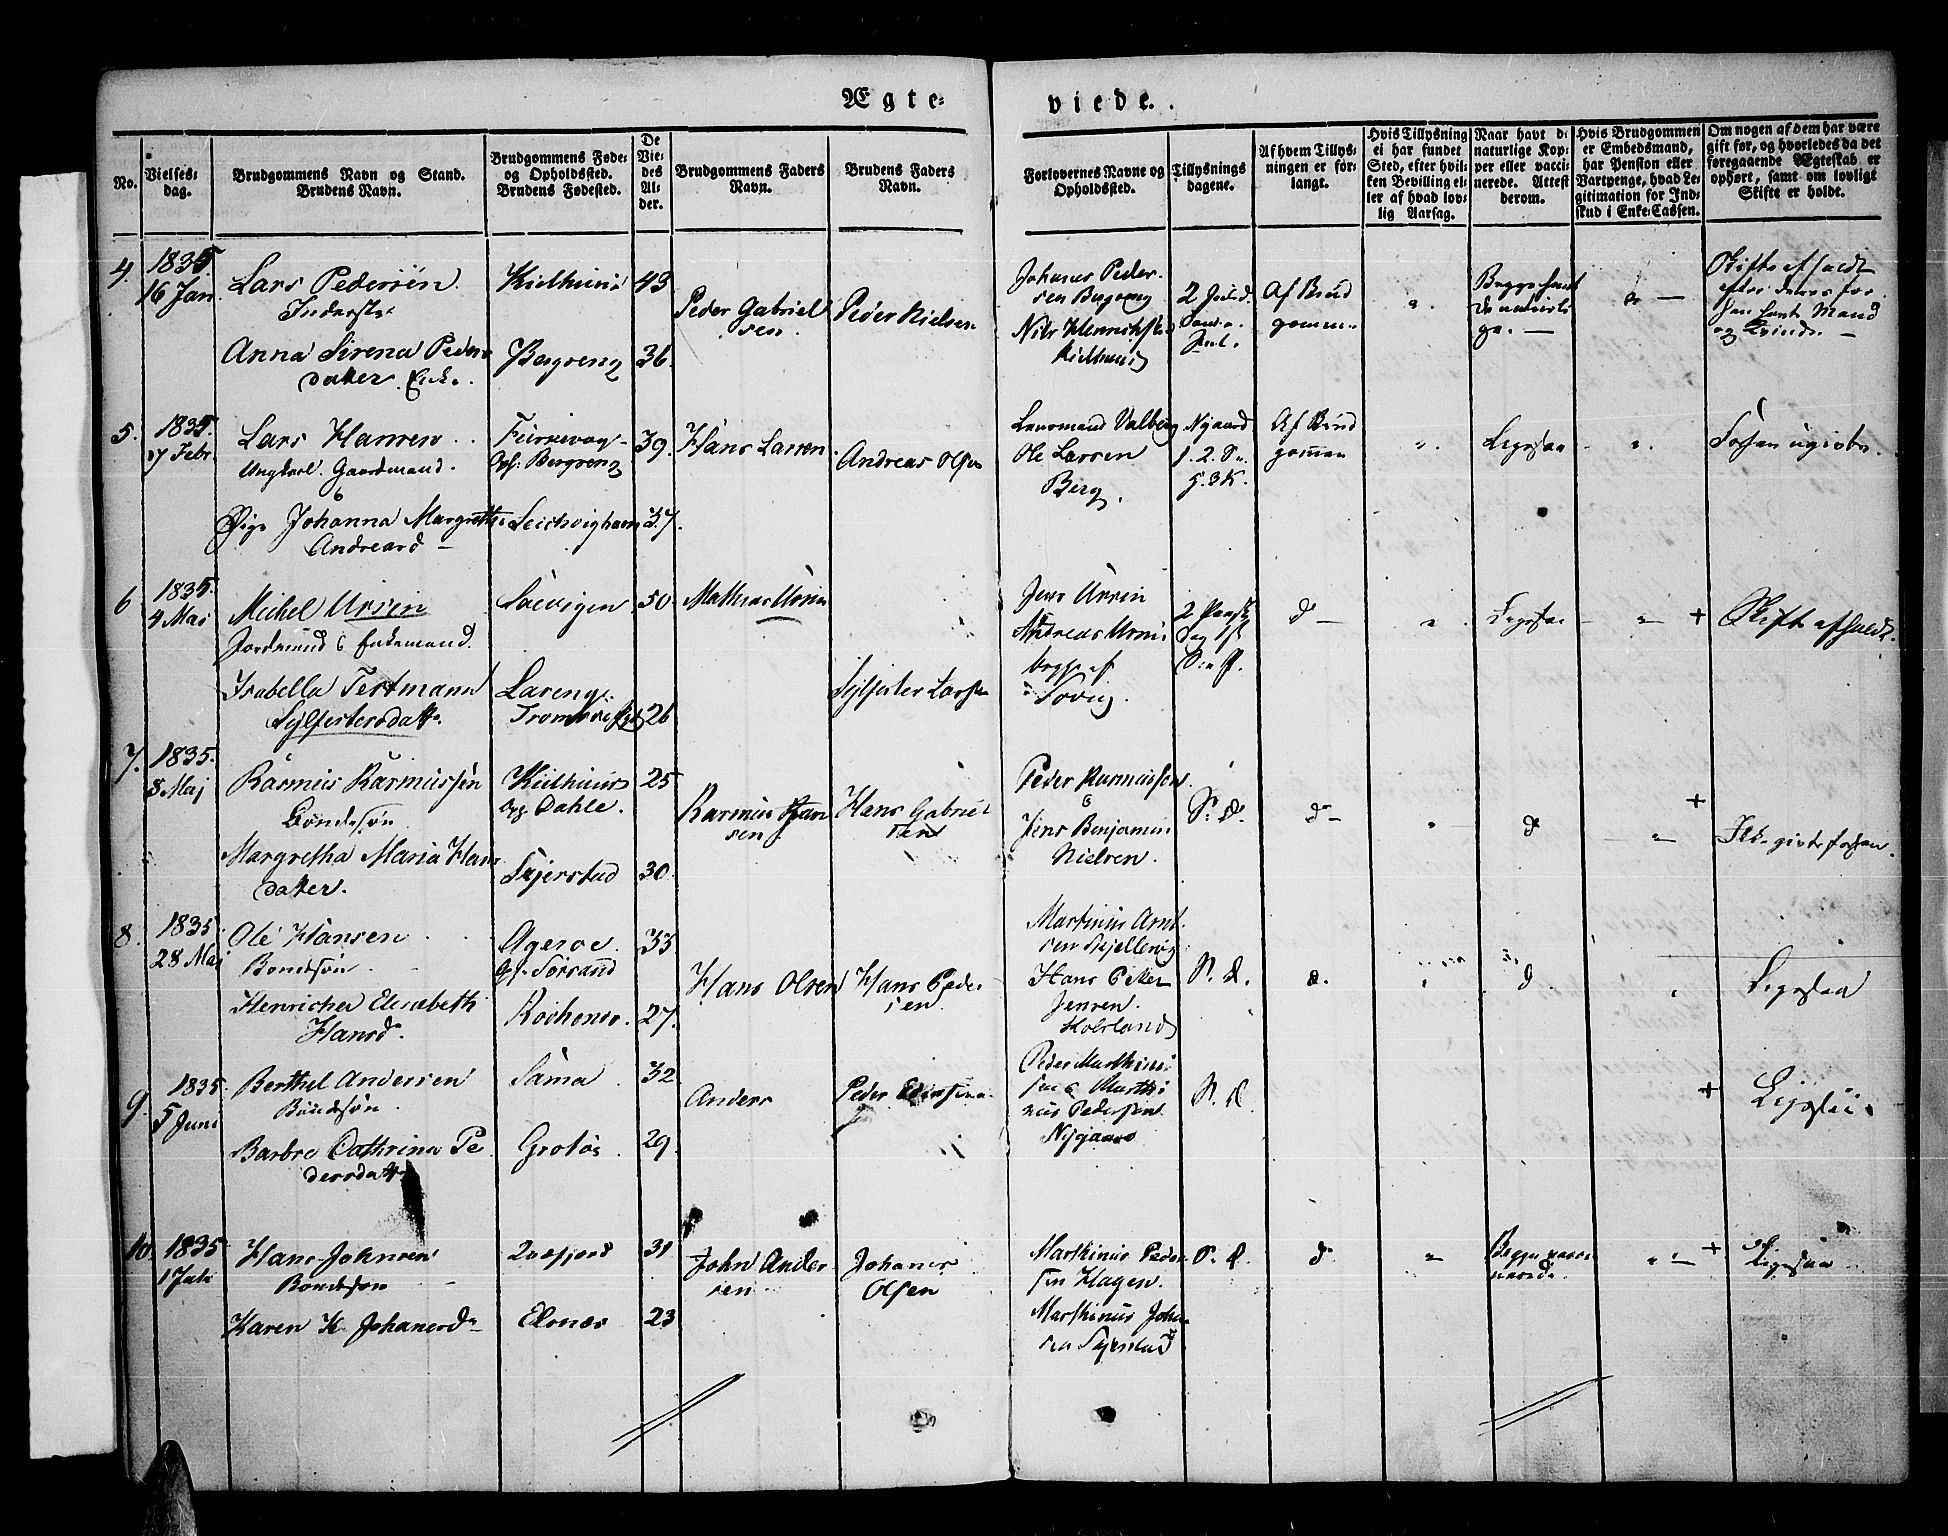 Ægte- viede.
No.
Vielses-
dag.
Brudgommens Navn og Stand.
Brudens Navn.
Brudgommens Føde-
og Opholdssted.
Brudens Fødested.
De
Vie-
des
Al-
der.
Brudgommens Faders
Navn.
Brudens Faders
Navn.
Forlovernes Navne og
Opholdssted.
Tillysnings
dagene.
Af hvem Tillys-
ningen er for-
langt.
Hvis Tillysning
ei har fundet
Sted, efter hvil-
ken Bevilling el-
ler af hvad lov-
lig Aarsag.
Naar havt de
naturlige Kop-
per eller vacci-
nerede. Attest
derom.
Hvis Brudgommen
er Embedsmand,
har Pension eller
Vartpenge, hvad Le-
gitimation for Ind-
skud i Enke-Cassen.
Om nogen af dem har være
gift før, og hvorledes da det
foregaaende Ægteskab er
ophørt, samt om lovligt
Skifte er holdt.
4.
1835.
16 Jan.
Lars Pedersen
Inderste
Anna Sirena Peders
datter. Enke.
Kielhuus
Bergveng
43
36.
Peder Gabriel
sen.
Peder Nielsen
Johanes Peder
sen Bergveng
Nils Henrichsen
Kielhuus
2 Juled.
Af Brud
gommen
Begge havt
de naturli
ge. —
Skifte afholdt
efter deres for
hen havte Mand
og Qvinde —
5.
1835.
7 Febr.
Lars Hansen
Ungkarl. Gaardmand.
Pige Johanna Margrethe
Andreasd —
Bergveng
39.
37.
Hans Larsen.
Andreas Olsen
Lensmand Valberg
Ole Larsen
Berg.
Nyaard
Af Brud
gommen
Ligesaa
Forhen ugivte.
6
1835.
4 Mai
Michel Ursin
Jordmand & Enkemand.
Isabella Testmann
Sylfestersdatt.
Saevigen
Lareng.
50.
26
Mathias Ursin
Sylfester Larsen
Jens Ursin
Andreas Ursin
begge af
Sovig.
2 Paaske
Dag
d° —
Ligesaa
+
Skifte afholdt.
7.
1835.
8 Maj
Rasmus Rasmussen
Bondesøn
Margretha Maria Hans
datter.
Kielhuus
Dahle.
Skjerstad
25
30.
Rasmus Han
sen
Hans Gabriel
sen
Peder Rasmussen
&
Jens Benjamin
Nielsen.
S. d.
d° —
d
+
Ikke givte forhen.
8.
1835
28 Maj
Ole Hansen
Bondesøn
Henricha Elisabeth
Hansd.
Ageroe.
33
27.
Hans Olsen
Hans Peder
sen
Martinus Arnt
sen
Hans Peter
Jensen.
S. d.
d.
d.
Ligesaa
9.
1835.
5 Juni
Berthel Andersen
Bondesøn.
Barbro Cathrina Pe
dersdatt
Sama
Grotøe
32
29.
Anders
Peder
Peder Marthini
sen & Marthi
nus Pedersen
Nygaard
S. d.
+
Ligesaa
10.
1835
1 Juli
Hans Johnsen
Bondesøn
Karen K. Johanesd
Qvæfjord
Elsnæs
31
23
John Ander
sen
Johanes
Olsen
Marthinus Peder
sen Hagen.
Marthinus Johan
sen
S. d.
d°
Begge vacci
nerede.
+
Ligesaa